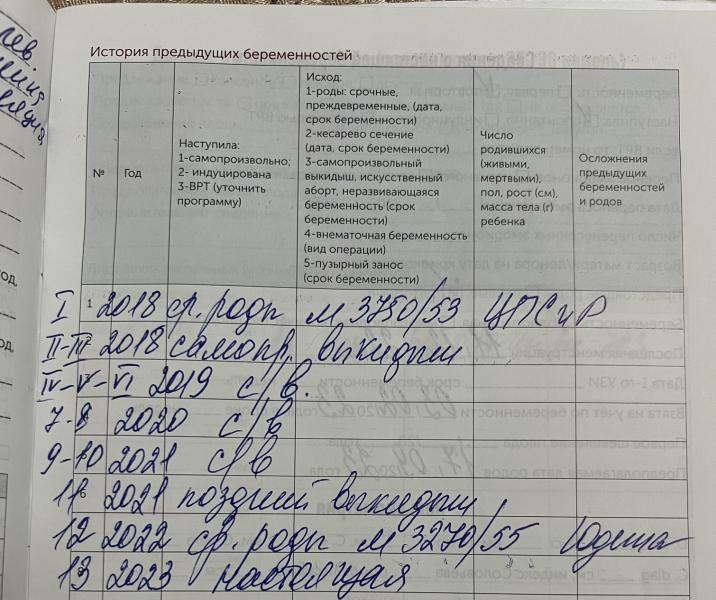 лев
История предыдущих беременностей
№
Год
Наступила:
1-самопроизвольно;
2- индуцирована
3-ВРТ (уточнить
программу)
Исход:
1-роды: срочные,
преждевременные, (дата,
срок беременности)
2-кесарево сечение
(дата, срок беременности)
3-самопроизвольный
выкидыш, искусственный
аборт, неразвивающаяся
беременность (срок
беременности)
4-внематочная беременность
(вид операции)
5-пузырный занос
(срок беременности)
Число
родившихся
(живыми,
мертвыми),
пол, рост (см),
масса тела (г)
ребенка
Осложнения
предыдущих
беременностей
и родов
I 1 2018 ср. роды м 3750/53 ЦПСиР
II-III 2018 самопр. выкидыш
IV-V-VI 2019 с/в.
7-8 2020 с/в
9-10 2021 с/в
11 2021 поздний выкидыш
12 2022 ср. роды м 3270/55 Юдина
13 2023 настоящая